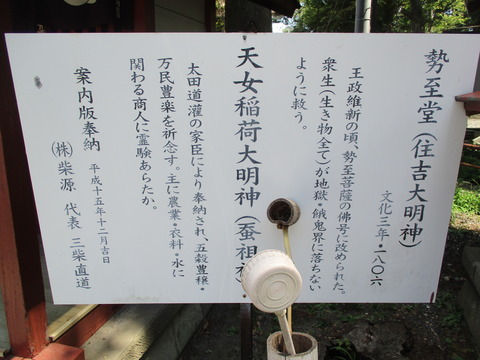 勢至堂（住吉大明神）
文化三年・一八〇六
王政維新の頃、勢至菩薩の佛号に改められた。
衆生（生き物全て）が地獄・餓鬼界に落ちない
ように救う。
天女稲荷大明神（蚕祖神
太田道灌の家臣により奉納され、五穀豊穣・
万民豊楽を祈念す。主に農業・衣料・水に
関わる商人に霊験あらたか。
案内版奉納 平成十五年十二月吉日
（株）柴源 代表 三柴直道